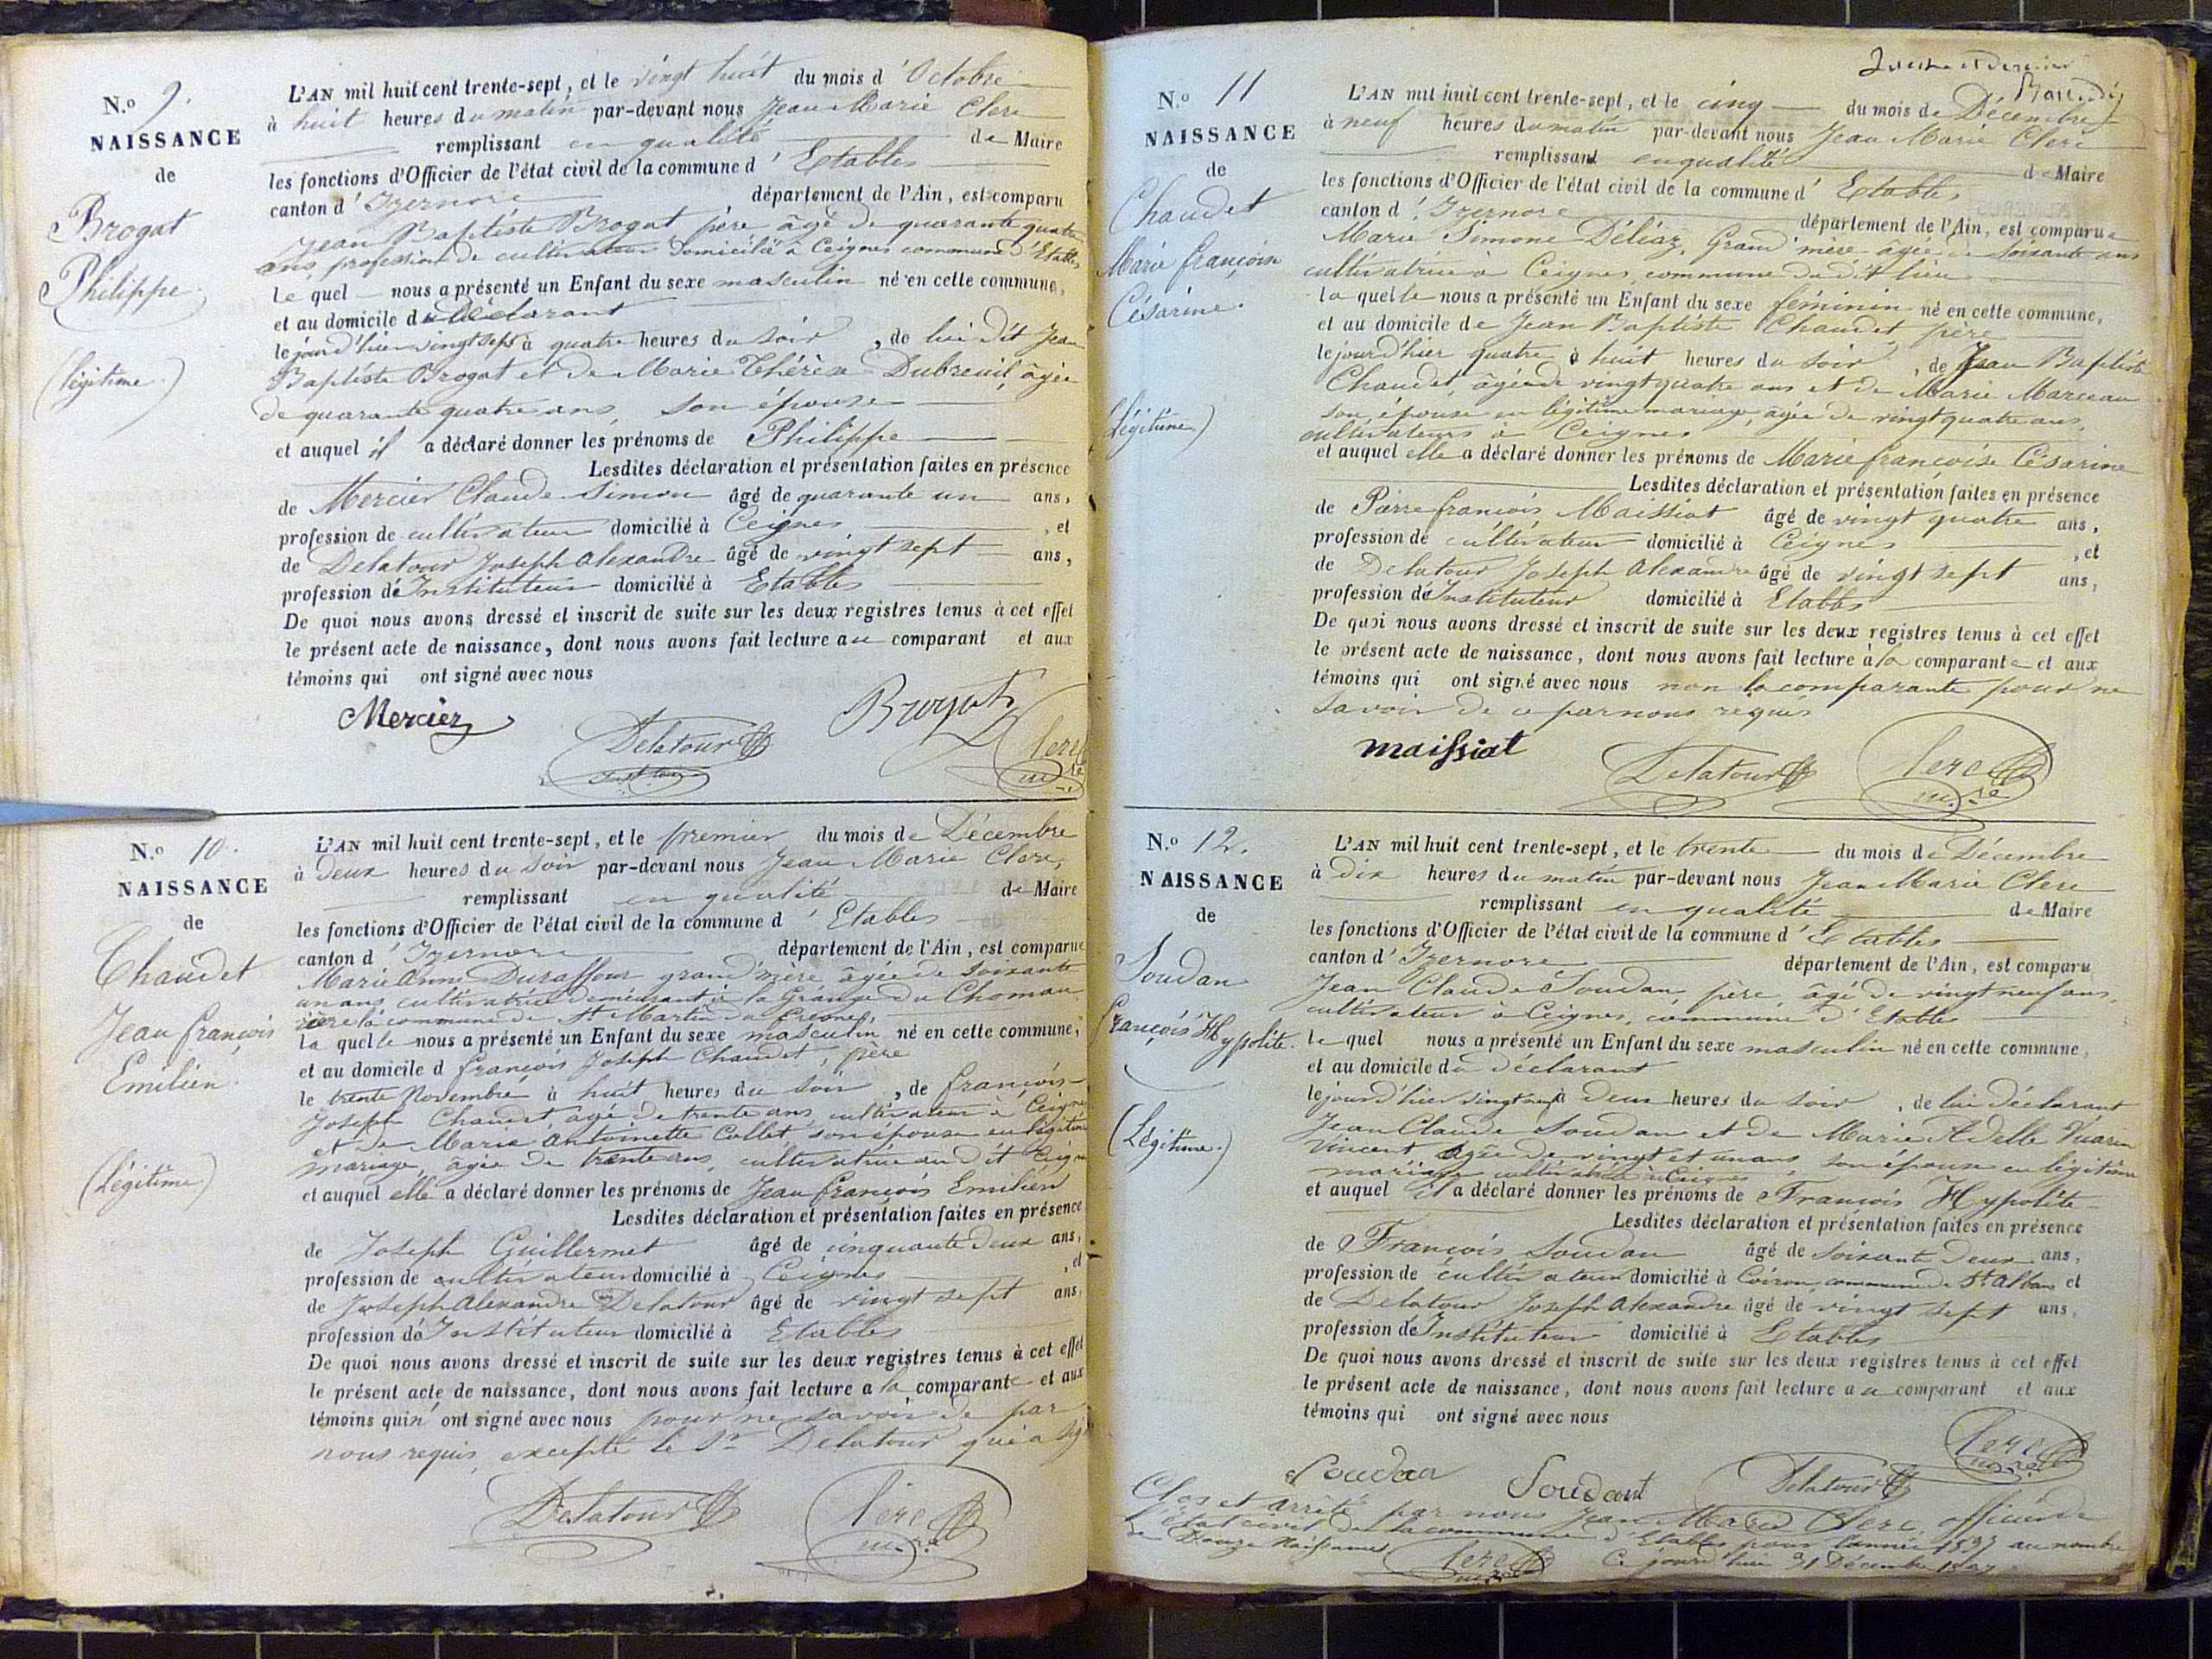 N.o 9.
NAISSANCE
de
Brogat
Philippe
(légitime.)
L'AN mil huit cent trente-sept, et le vingt huit du mois d'Octobre
à huit heures du matin par-devant nous Jean Marie Clerc
remplissant en qualité de Maire
les fonctions d'Officier de l'état civil de la commune d'Etables
canton d'Izernore département de l'Ain, est comparu
Jean Baptiste Brogat père âgé de quarante quatre
ans, profession de cultivateur domicilié à Ceignes commune d'Etables
le quel nous a présenté un Enfant du sexe masculin né en cette commune,
et au domicile du Déclarant
le jour d'hier vingt sept à quatre heures du soir, de lui dit Jean
Baptiste Brogat et de Marie Thérèse Dubreuil, âgée
de quarante quatre ans, son épouse
et auquel il a déclaré donner les prénoms de Philippe
Lesdites déclaration et présentation faites en présence
de Mercier Claude Simon âgé de quarante un ans,
profession de cultivateur domicilié à Ceignes, et
de Delatour Joseph Alexandre âgé de vingt sept ans,
profession d'Instituteur domicilié à Etables
De quoi nous avons dressé et inscrit de suite sur les deux registres tenus à cet effet
le présent acte de naissance, dont nous avons fait lecture au comparant et aux
témoins qui ont signé avec nous
Mercier Delatour Brogat Clerc
N.o 10.
NAISSANCE
de
Chaudet
Jean françois
Emilien.
(Légitime)
L'AN mil huit cent trente-sept, et le premier du mois de Décembre
à deux heures du soir par-devant nous Jean Marie Clerc,
remplissant en qualité de Maire
les fonctions d'Officier de l'état civil de la commune d'Etables
canton d'Izernore département de l'Ain, est comparue
Marie Anne Duraffour grand'mère âgée de soixante
un ans, cultivatrice demeurant à la Grange du
commune de St Martin du Fresne,
la quelle nous a présenté un Enfant du sexe masculin né en cette commune,
et au domicile d françois Joseph Chaudet, père
le trente Novembre à huit heures du soir, de françois
Joseph Chaudet, âgé de trente ans, cultivateur à Ceignes
et de Marie Antoinette Collet, son épouse en légitime
mariage, âgée de trente ans, cultivatrice au dit Ceignes
et auquel elle a déclaré donner les prénoms de Jean françois Emilien
Lesdites déclaration et présentation faites en présence
de Joseph Guillermet âgé de cinquante deux ans,
profession de cultivateur domicilié à Ceignes, et
de Joseph Alexandre Delatour âgé de vingt sept ans,
profession d'Instituteur domicilié à Etables
De quoi nous avons dressé et inscrit de suite sur les deux registres tenus à cet effet
le présent acte de naissance, dont nous avons fait lecture a la comparante et aux
témoins qui n'ont signé avec nous pour ne savoir de par
nous requis, excepté le Sr Delatour qui a
Delatour Clerc
N.o 11
NAISSANCE
de
Chaudet
Marie françoise
Césarine.
(Légitime)
L'AN mil huit cent trente-sept, et le cinq du mois de Décembre
à neuf heures du matin par-devant nous Jean Marie Clerc
remplissant en qualité de Maire
les fonctions d'Officier de l'état civil de la commune d'Etables
canton d'Izernore département de l'Ain, est comparue
Marie Simone Déliaz, Grand'mère âgée de soixante ans
cultivatrice à Ceignes, commune du dit lieu
la quelle nous a présenté un Enfant du sexe féminin né en cette commune,
et au domicile de Jean Baptiste Chaudet père
le jour d'hier quatre à huit heures du soir, de Jean Baptiste
Chaudet, âgé de vingt quatre ans et de Marie Marceau
son épouse en légitime mariage, âgée de vingt quatre ans,
cultivateurs à Ceignes
et auquel elle a déclaré donner les prénoms de Marie françoise Césarine
Lesdites déclaration et présentation faites en présence
de Pierre françois Maissiat âgé de vingt quatre ans,
profession de cultivateur domicilié à Ceignes, et
de Delatour Joseph Alexandre âgé de vingt sept ans,
profession d'Instituteur domicilié à Etables
De quoi nous avons dressé et inscrit de suite sur les deux registres tenus à cet effet
le présent acte de naissance, dont nous avons fait lecture à la comparante et aux
témoins qui ont signé avec nous non la comparante pour ne
savoir de ce par nous requis
maissiat Delatour Clerc
N.o 12.
NAISSANCE
de
Soudan
François Hypolite.
(Légitime.)
L'AN mil huit cent trente-sept, et le trente du mois de Décembre
à dix heures du matin par-devant nous Jean Marie Clerc
remplissant en qualité de Maire
les fonctions d'Officier de l'état civil de la commune d'Etables
canton d'Izernore département de l'Ain, est comparu
Jean Claude Soudan père, âgé de vingt neuf ans,
cultivateur à Ceignes, commune d'Etables
le quel nous a présenté un Enfant du sexe masculin né en cette commune,
et au domicile du déclarant
le jour d'hier vingt neuf à deux heures du soir, de lui déclarant
Jean Claude Soudan et de Marie Adelle
Vincent âgée de vingt et un ans, son épouse en légitime
mariage cultivatrice à Ceignes
et auquel il a déclaré donner les prénoms de François Hypolite
Lesdites déclaration et présentation faites en présence
de François Soudan âgé de soixante deux ans,
profession de cultivateur domicilié à commune de St Alban et
de Delatour Joseph Alexandre âgé de vingt sept ans,
profession d'Instituteur domicilié à Etables
De quoi nous avons dressé et inscrit de suite sur les deux registres tenus à cet effet
le présent acte de naissance, dont nous avons fait lecture au comparant et aux
témoins qui ont signé avec nous
Clerc
Soudan Soudant Delatour
Clos et arrêté par nous Jean Marie Clerc, officier de
l'état civil de la commune d'Etables pour l'année 1837 au nombre
de Douze Naissances Ce jourd'hui 31 Décembre 1837
Clerc